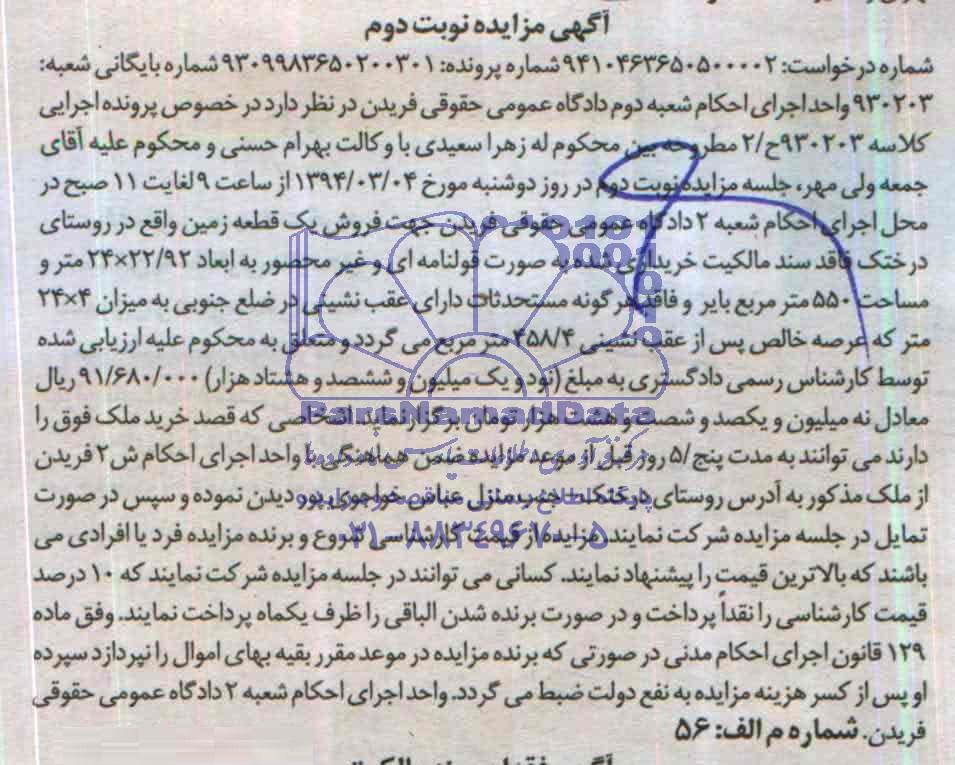 آگهی مزایده نوبت دوم
شماره درخواست: ۹۴۱۰۴۶۳۶۵۰۵۰۰۰۰۲ شماره پرونده: ۹۳۰۹۹۸۳۶۵۰۲۰۰۳۰۱ شماره بایگانی شعبه:
۹۳۰۲۰۳ واحد اجرای احکام شعبه دوم دادگاه عمومی حقوقی فریدن در نظر دارد در خصوص پرونده اجرایی
کلاسه ۹۳۰۲۰۳ح/۲ مطروحه بین محکوم له زهرا سعیدی با وکالت بهرام حسنی و محکوم علیه آقای
جمعه ولی مهر، جلسه مزایده نوبت دوم در روز دوشنبه مورخ ۱۳۹۴/۰۳/۰۴ از ساعت ۹ لغایت ۱۱ صبح در
محل اجرای احکام شعبه ۲ دادگاه عمومی حقوقی فریدن جهت فروش یک قطعه زمین واقع در روستای
درختک فاقد سند مالکیت خریداری شده به صورت قولنامه ای و غیر محصور به ابعاد ۲۲/۹۲×۲۴ متر و
مساحت ۵۵۰ متر مربع بایر و فاقد هرگونه مستحدثات دارای عقب نشینی در ضلع جنوبی به میزان ۴×۲۴
متر که عرصه خالص پس از عقب نشینی ۴۵۸/۴ متر مربع می گردد و متعلق به محکوم علیه ارزیابی شده
توسط کارشناس رسمی دادگستری به مبلغ (نود و یک میلیون و ششصد و هشتاد هزار) ۹۱/۶۸۰/۰۰۰ ریال
معادل نه میلیون و یکصد و شصت و هشت هزار تومان برگزار نماید. اشخاصی که قصد خرید ملک فوق را
دارند می توانند به مدت پنج/۵ روز قبل از موعد مزایده ضمن هماهنگی با واحد اجرای احکام ش۲ فریدن
از ملک مذکور به آدرس روستای درختک- جنب منزل عباس خواجوی پور دیدن نموده و سپس در صورت
تمایل در جلسه مزایده شرکت نمایند. مزایده از قیمت کارشناسی شروع و برنده مزایده فرد یا افرادی می
باشند که بالاترین قیمت را پیشنهاد نمایند. کسانی می توانند در جلسه مزایده شرکت نمایند که ۱۰ درصد
قیمت کارشناسی را نقداً پرداخت و در صورت برنده شدن الباقی را ظرف یکماه پرداخت نمایند. وفق ماده
۱۲۹ قانون اجرای احکام مدنی در صورتی که برنده مزایده در موعد مقرر بقیه بهای اموال را نپردازد سپرده
او پس از کسر هزینه مزایده به نفع دولت ضبط می گردد. واحد اجرای احکام شعبه ۲ دادگاه عمومی حقوقی
فریدن. شماره م الف: ۵۶
ParsNamadData
۰۲۱-۸۸۳۴۹۶۷۰-۵